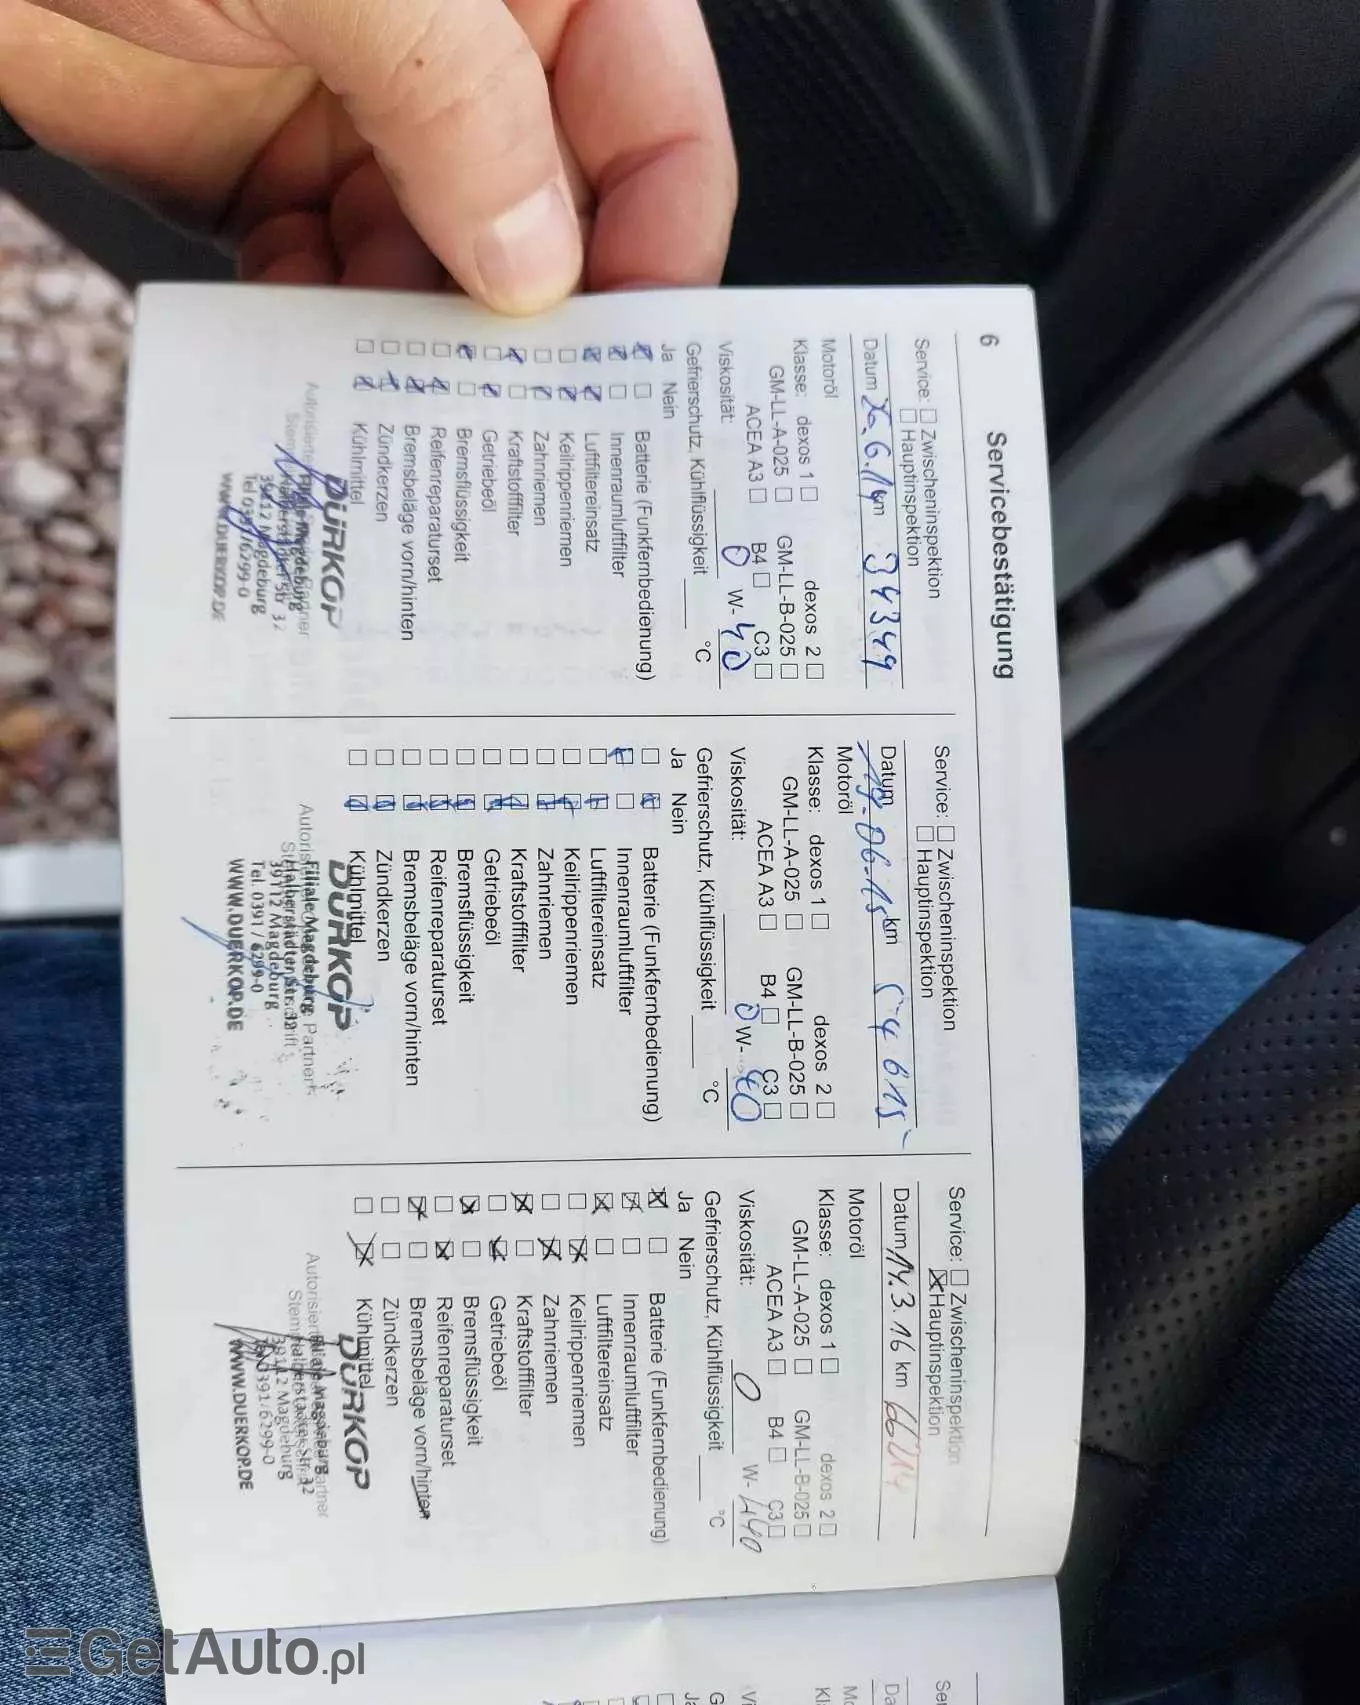 6 Servicebestätigung
Service: Zwischeninspektion
Hauptinspektion
Datum km 34349
Motoröl
Klasse: dexos 1 dexos 2
GM-LL-A-025 GM-LL-B-025
ACEA A3 B4 C3
Viskosität: 0 W-40
Gefrierschutz, Kühlflüssigkeit °C
Ja Nein
Batterie (Funkfernbedienung)
Innenraumluftfilter
Luftfiltereinsatz
Keilrippenriemen
Zahnriemen
Kraftstofffilter
Getriebeöl
Bremsflüssigkeit
Reifenreparaturset
Bremsbeläge vorn/hinten
Zündkerzen
Kühlmittel
DÜRKOP
39112 Magdeburg
WWW.DUERKOP.DE
Service: Zwischeninspektion
Hauptinspektion
Datum 19.06.15 km 54615
Motoröl
Klasse: dexos 1 dexos 2
GM-LL-A-025 GM-LL-B-025
ACEA A3 B4 C3
Viskosität: 0 W-40
Gefrierschutz, Kühlflüssigkeit °C
Ja Nein
Batterie (Funkfernbedienung)
Innenraumluftfilter
Luftfiltereinsatz
Keilrippenriemen
Zahnriemen
Kraftstofffilter
Getriebeöl
Bremsflüssigkeit
Reifenreparaturset
Bremsbeläge vorn/hinten
Zündkerzen
Kühlmittel
DÜRKOP
Filiale Magdeburg
Halberstädter Str. 32
39112 Magdeburg
Tel. 0391 / 6299-0
WWW.DUERKOP.DE
Service: Zwischeninspektion
Hauptinspektion
Datum 14.3.16 km 66214
Motoröl
Klasse: dexos 1 dexos 2
GM-LL-A-025 GM-LL-B-025
ACEA A3 B4 C3
Viskosität: 0 W-40
Gefrierschutz, Kühlflüssigkeit °C
Ja Nein
Batterie (Funkfernbedienung)
Innenraumluftfilter
Luftfiltereinsatz
Keilrippenriemen
Zahnriemen
Kraftstofffilter
Getriebeöl
Bremsflüssigkeit
Reifenreparaturset
Bremsbeläge vorn/hinten
Zündkerzen
Kühlmittel
DÜRKOP
39112 Magdeburg
WWW.DUERKOP.DE
GetAuto.pl